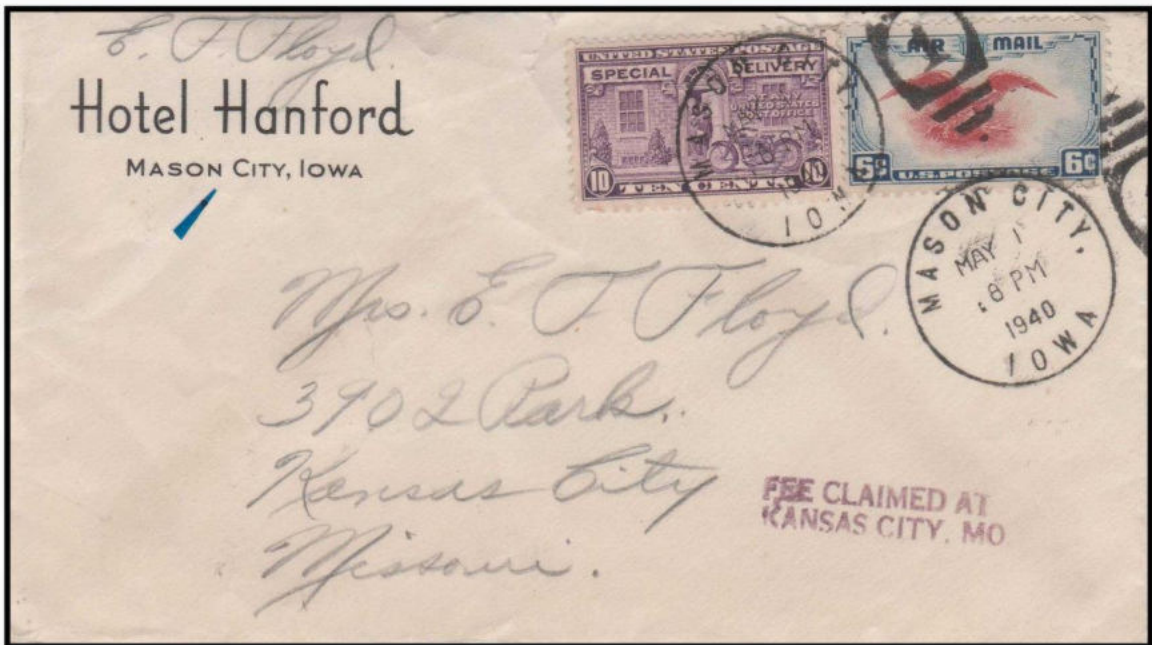 E. T. Floyd.
Hotel Hanford
MASON CITY, IOWA
UNITED STATES POSTAGE
SPECIAL DELIVERY
AT ANY
UNITED STATES
POST OFFICE
10 TEN CENTS 10
AIR MAIL
6¢ U.S. POSTAGE 6¢
MASON
1940
IOWA
MASON CITY,
MAY 1
8 PM
1940
IOWA
Mrs. E. T. Floyd.
3902 Park.
Kansas City
Missouri.
FEE CLAIMED AT
KANSAS CITY, MO